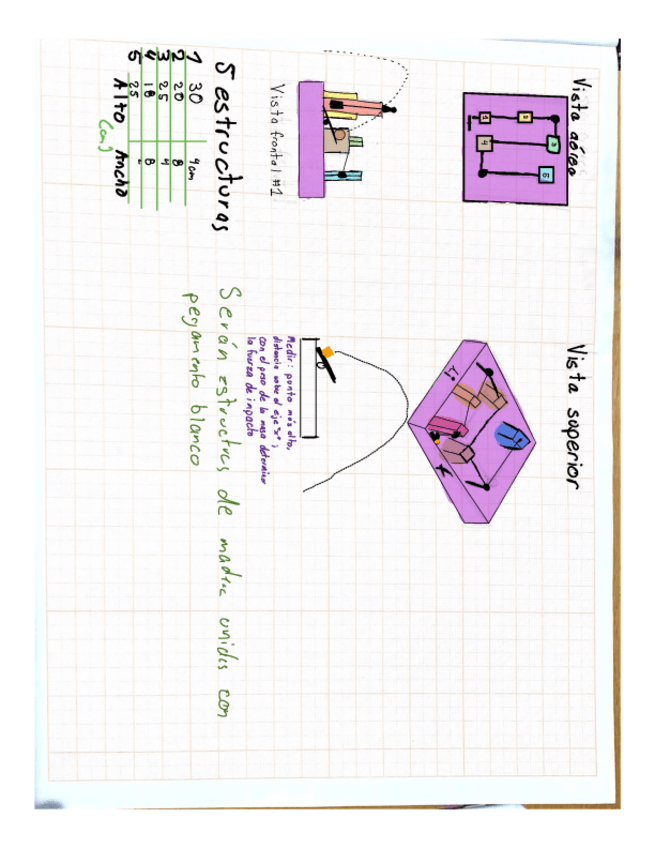 Vista aérea
1 2 3
4 5
Vista superior
Vista frontal #1
Medir: punto más alto,
distancia sobre el eje "x",
con el peso de la masa determinar
la fuerza de impacto
5 estructuras
1 30 4cm
2 20 8
3 25 4
4 18 8
5 25
Alto Ancho
(cm)
Serán estructras de madera unidas con
pegamento blanco